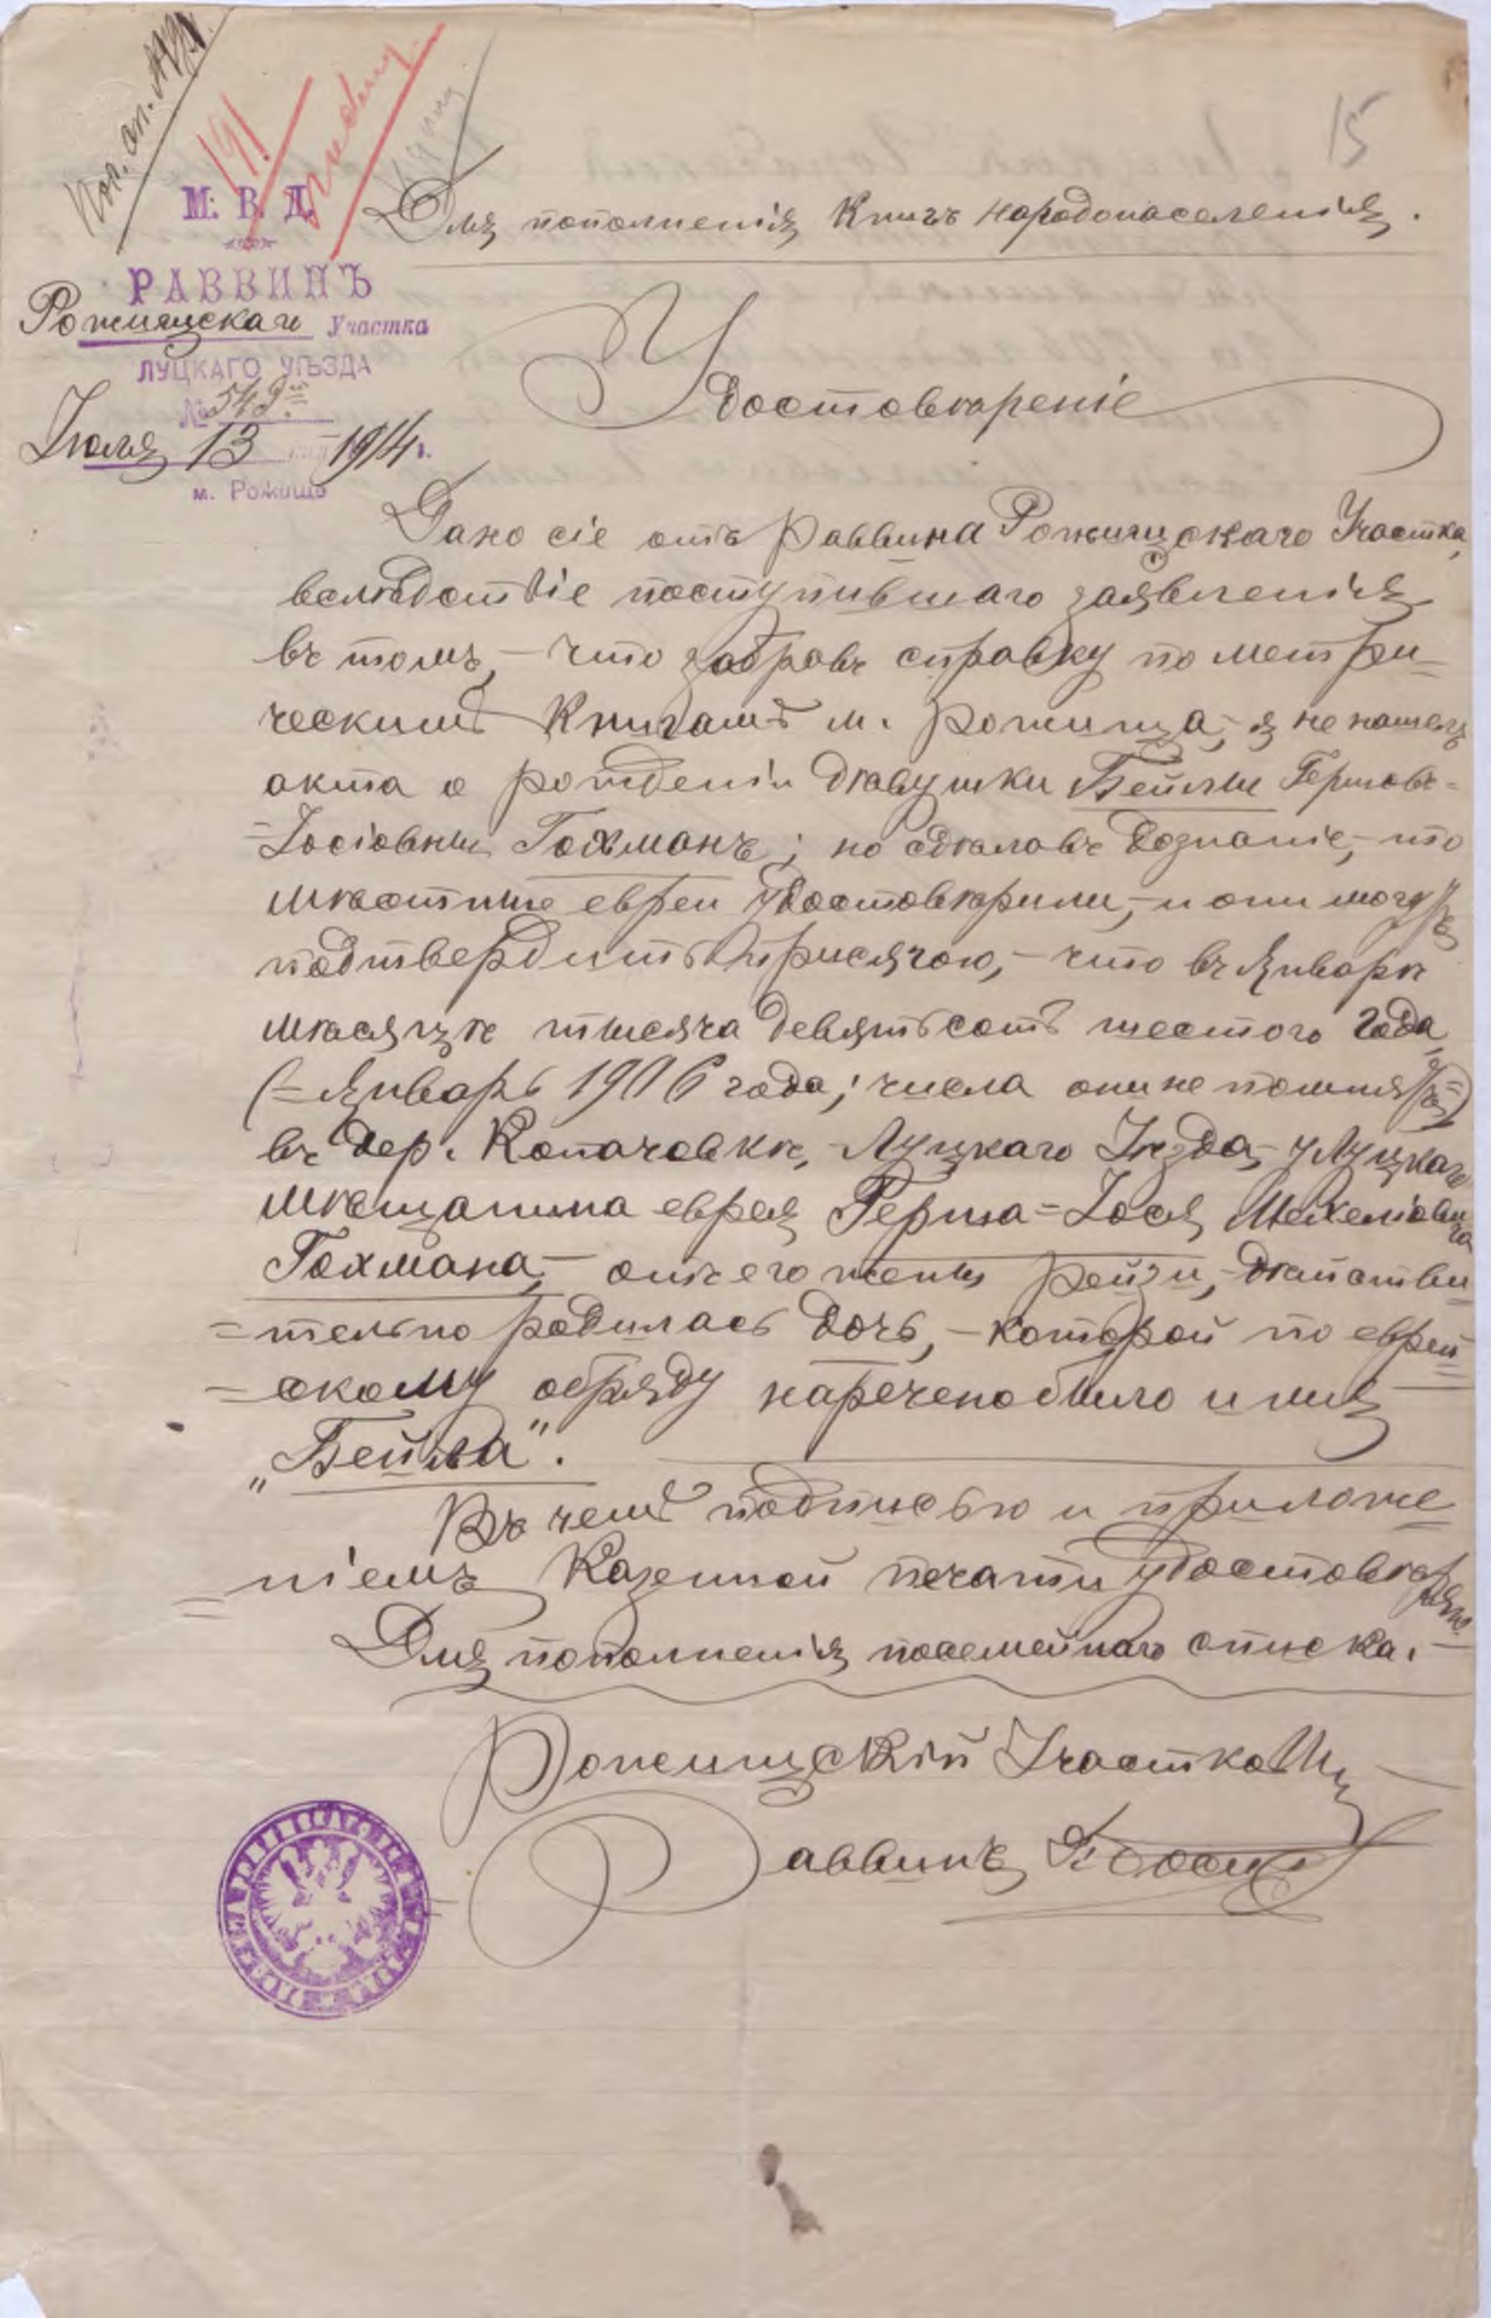 15
М. В. Д.
РАВВИНЪ
Рожищскаго Участка
ЛУЦКАГО УѢЗДА
№ 549
Іюля 13 1914 г.
м. Рожище
Для пополненія Книгъ народонаселенія.
Удостовѣреніе
Дано сіе отъ Раввина Рожищскаго Участка,
вслѣдствіе поступившаго заявленія
въ томъ, – что забравъ справку по метри-
ческимъ Книгамъ м. Рожища, – я не нашелъ
акта о рожденіи дѣвушки Бейлы Гершовъ-
=Іосіовны Гохманъ; но сдѣлавъ дознаніе, – что
мѣстные евреи удостовѣрили, – и они могутъ
подтвердить присягою, – что въ Январѣ
мѣсяцѣ тысяча девятьсотъ шестого года,
(=Январь 1906 года; числа они не помнятъ=)
въ дер. Копачовкѣ, – Луцкаго Уѣзда, – у Луцкаго
мѣщанина еврея Герша=Іося Мехеліовича
Гохмана, – отъ его жены Рейзи, – дѣйстви
=тельно родилась дочь, – которой по еврей
=скому обряду наречено было имя
„Бейла".
Въ чемъ подписью и приложе
=ніемъ Казенной печати удостовѣряю.
Для пополненія посемейнаго списка. –
Рожищскій Участковый
Раввинъ